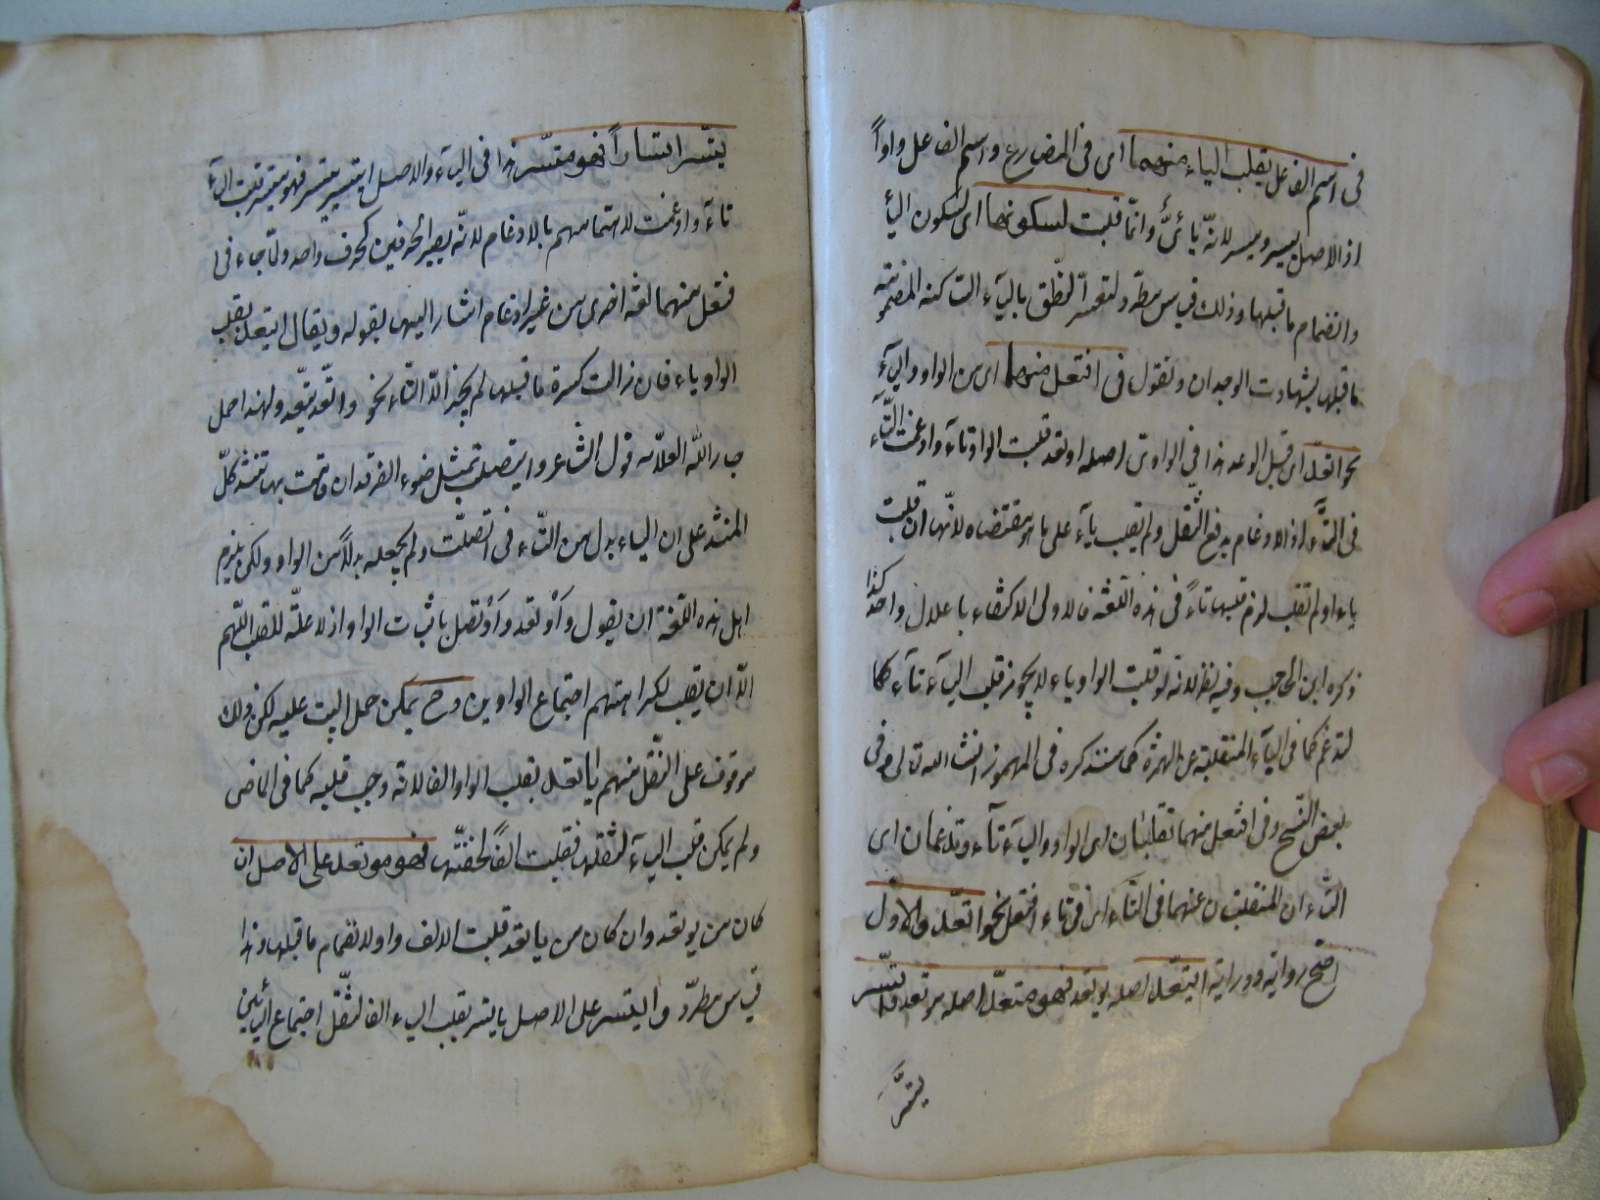 فى اسم الفاعل يقلب الياء منهما اى فى المضارع واسم الفاعل واواً
اذ الاصل ييسر وميسر لانه يائىّ وانما قلبت لسكونها اى لسكون الياء
وانضمام ما قبلها وذلك قياس مطرد لتعسر النطق بالياء الساكنة المضمومة
ما قبلها بشهادت الوجدان وتقول فى افتعل منهما اى من الواو والياء
نحو اتعد اى قبل الوعد هذا فى الواوى اصله اوتعد قلبت الواو تاء وادغمت التاء
فى التاء اذ الادغام يدفع الثقل ولم يقلب ياء على ما هو مقتضاه لانها ان قلبت
ياء او لم تقلب لزم قلبها تاءً فى هذه اللغة فالاولى الاكتفاء باعلال واحد كذا
ذكره ابن الحاجب وفيه نظر لانه لو قلبت الواو ياء لا يجوز قلب الياء تاء كما
لتدغم كما فى الياء المنقلبة عن الهمزة كما سنذكره فى المهموز انشاء الله تعالى وفى
بعض النسخ وفى افتعل منهما تقلبان اى الواو والياء تاء وتدغمان اى
التاءان المنقلبتان عنهما فى التاء اى فى تاء افتعل نحو اتعد والاول
اصح رواية ودراية يتعد اصله يوتعد فهو متعد اصله موتعد واتسر
يتسر
يتسر اتسارا فهو متسر هذا فى الياء والاصل ايتسر ييتسر فهو ميتسر قلبت الياء
تاء وادغمت لاهتمامهم بالادغام لانه يصير الحرفين كحرف واحد ولما جاء فى
افتعل منهما لغة اخرى من غير ادغام اشار اليها بقوله ويقال ايتعد بقلب
الواو ياء فان زالت كسرة ما قبلها لم يجز الا التاء نحو واتعد يتعد ولهذا حمل
جار الله العلامة قول الشاعر وايتصلت بمثل ضوء الفرقدان قامت بها تنشد كل
المنشد على ان الياء بدل من التاء فى اتصلت ولم يجعله بدلاً من الواو ولكن يلزم
اهل هذه اللغة ان يقول واوتعد واوتصل باثبات الواو اذ لا علة للقلب اللهم
الا ان يقلب لكراهتهم اجتماع الواوين وح يمكن حمل البيت عليه لكن ذلك
موقوف على النقل منهم ياتعد بقلب الواو الفا لانه وجب قلبه كما فى الماضى
ولم يمكن قلب الياء لثقلها فقلبت الفاً لخفتها فهو موتعد على الاصل ان
كان من يوتعد وان كان من ياتعد قلبت الالف واوا لانضمام ما قبلها وهذا
قياس مطرد وايتسر على الاصل ياتسر بقلب الياء الفا لثقل اجتماع اليائين